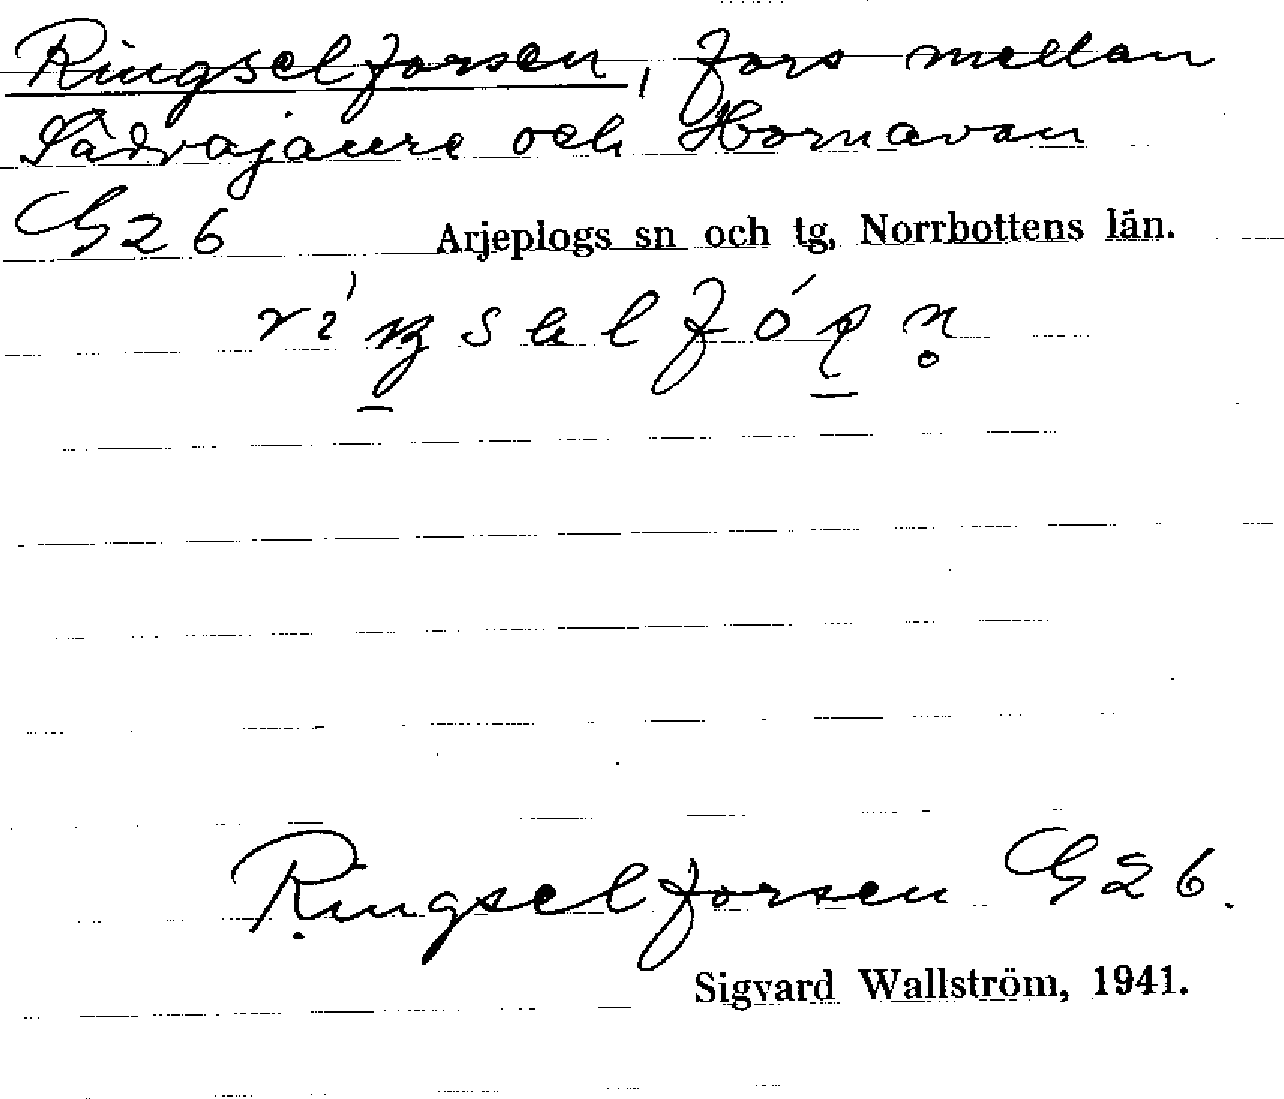 Ringselforsen, fors mellan
Sädvajaure och Hornavan
G26 Arjeplogs sn och tg, Norrbottens län.
Ringselforsen G26.
Sigvard Wallström, 1941.